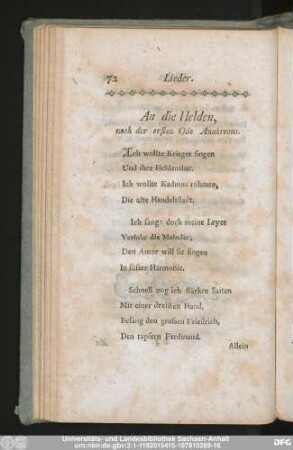 72 Lieder.
An die Helden,
nach der ersten Ode Anakreons.
Ich wollte Krieger singen
Und ihre Heldenthat.
Ich wollte Kadmus rühmen,
Die alte Handelsstadt.
Ich sang: doch meine Leyer
Verfolgt die Melodie;
Den Amor will sie singen
In süsser Harmonie.
Schnell zog ich stärkre Saiten
Mit einer dreisten Hand,
Besang den grossen Friedrich,
Den tapfern Ferdinand.
Allein
Universitäts- und Landesbibliothek Sachsen-Anhalt
urn:nbn:de:gbv:3:1-1192015415-187910289-16
DFG